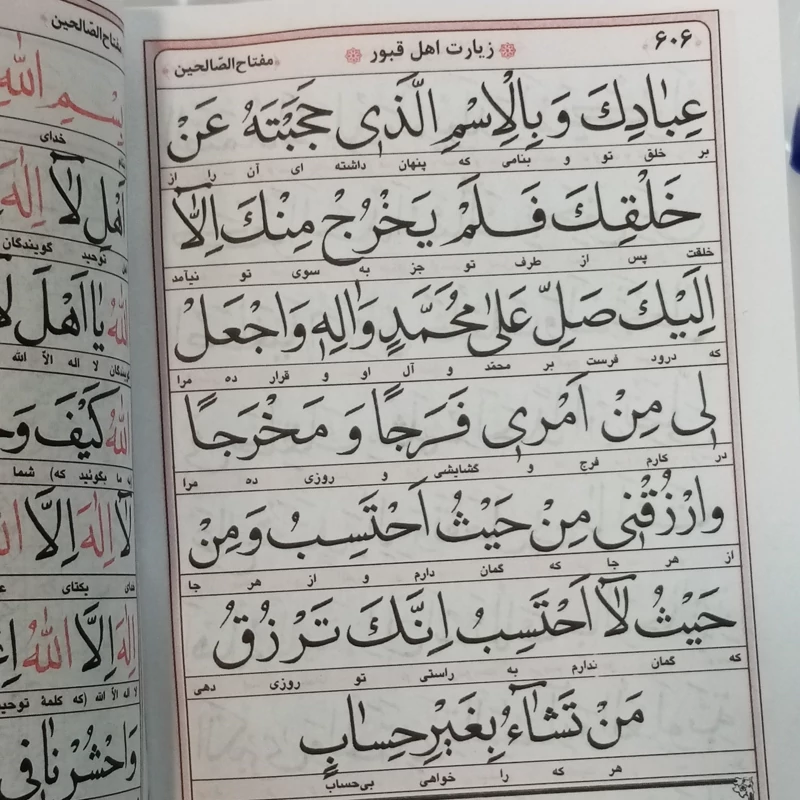 ۶۰۶ زیارت اهل قبور مفتاح‌الصّالحین
عِبٰادِكَ وَ بِالْاِسْمِ الَّذٰی حَجَبْتَهُ عَنْ
بر خلق تو و بنامی که پنهان داشته ای آن را از
خَلْقِكَ فَلَمْ یَخْرُجْ مِنْكَ اِلّٰا
خلقت پس از طرف تو جز به سوی تو نیآمد
اِلَیْكَ صَلِّ عَلیٰ مُحَمَّدٍ وَاٰلِهٖ وَاجْعَلْ
که درود فرست بر محمّد و آل او و قرار ده مرا
لٖی مِنْ اَمْرٖی فَرَجًا وَ مَخْرَجًا
در کارم فرج و گشایشی و روزی ده مرا
وارْزُقْنٖی مِنْ حَیْثُ اَحْتَسِبُ وَمِنْ
از هر جا که گمان دارم و از هر جا
حَیْثُ لٰآ اَحْتَسِبُ اِنَّكَ تَرْزُقُ
که گمان ندارم به راستی تو روزی دهی
مَنْ تَشٰآءُ بِغَیْرِ حِسٰابٍ
هر که را خواهی بی‌حساب
مفتاح‌الصّالحین
اللّٰهِ
خدای
لٰآ اِلٰهَ
توحید گویندگان
یٰا اَهْلَ
لا اله الاّ الله
كَیْفَ
ما بگوئید که) شما
لٰآ اِلٰهَ اِلَّا
یکتای
اِلٰهَ اِلَّا اللّٰهُ
لا اله الاّ الله (که کلمهٔ توحید
وَاحْشُرْنٰا فٖی